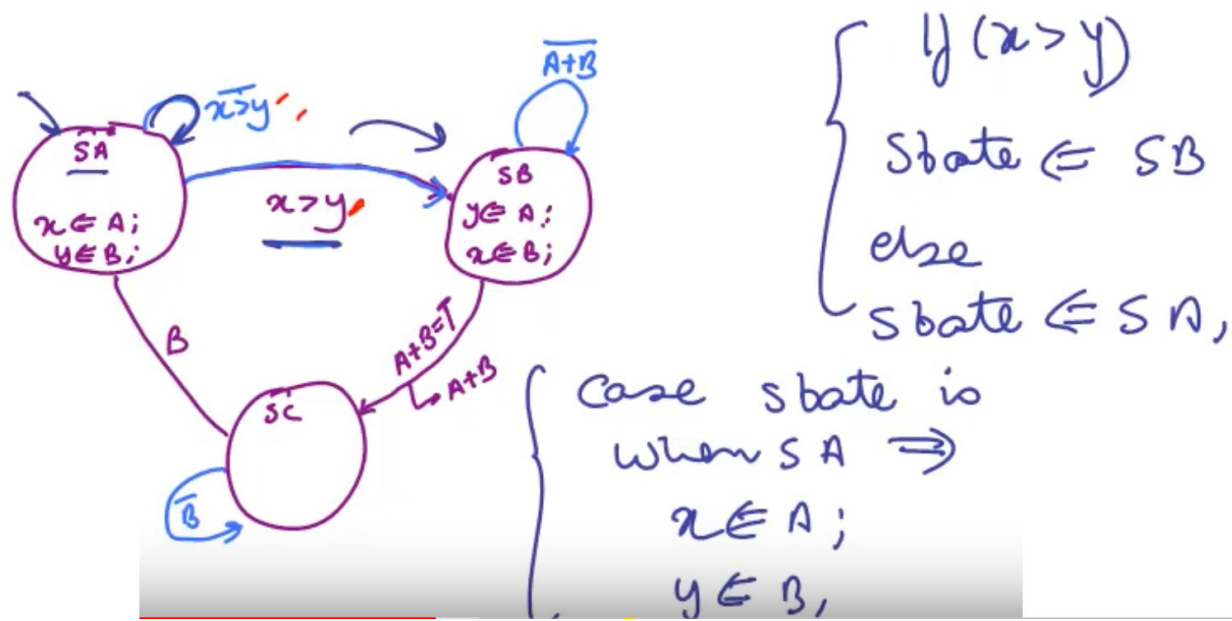 SA
x ⇐ A;
y ⇐ B;
x>y
x>y
A+B
SB
y ⇐ A;
x ⇐ B;
A+B=T
A+B
SC
B
B
If (x>y)
State ⇐ SB
else
State ⇐ SA,
Case state is
when SA ⇒
x ⇐ A;
y ⇐ B,